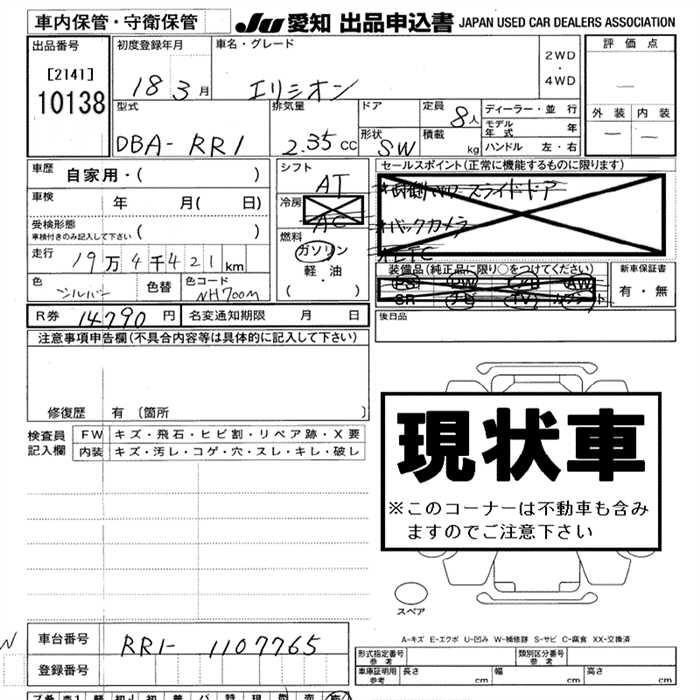 車内保管・守衛保管 JU 愛知 出品申込書 JAPAN USED CAR DEALERS ASSOCIATION
出品番号 初度登録年月 車名・グレード 2WD ・ 4WD 評価点
[2141] 10138 18 3月 エリシオン —
型式 排気量 ドア 定員 8人 ディーラー・並行 外装 内装
モデル年式 年 — —
DBA-RR1 2.35 CC 形状 SW 積載 kg ハンドル 左・右
車歴 自家用・( ) シフト AT セールスポイント(正常に機能するものに限ります)
スライドドア
車検 年 月( 日) 冷房 AC バックカメラ
受検形態 車検付きのみ記入して下さい ( ) ETC
走行 19万4千421km 燃料 ガソリン 軽・油 ・( ) 装備品(純正品に限り○をつけてください) 新車保証書
色 シルバー 色替 色コード NH700M PS PW AW 有・無
SR TV
R券 14790 円 名変通知期限 月 日 後日品
注意事項申告欄(不具合内容等は具体的に記入して下さい)
修復歴 有〔箇所 〕
検査員記入欄 FW キズ・飛石・ヒビ割・リペア跡・X要
内装 キズ・汚レ・コゲ・穴・スレ・キレ・破レ
現状車
※このコーナーは不動車も含み
ますのでご注意下さい
スペア
A-キズ E-エクボ U-凹み W-補修跡 S-サビ C-腐食 XX-交換済
車台番号 RR1-1107765 形式指定番号 参考 類別区分番号 参考
登録番号 車庫証明用 参考 長さ cm 幅 cm 高さ cm